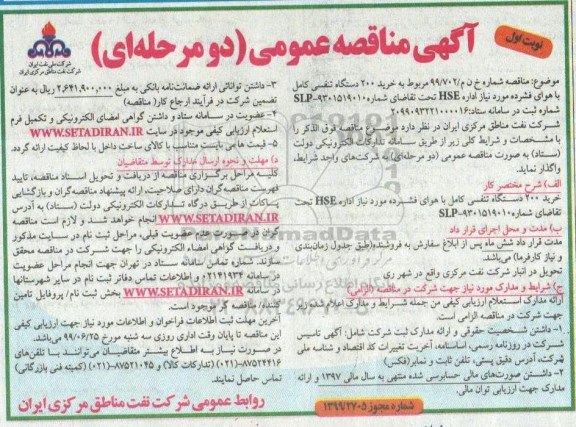 آگهی مناقصه عمومی (دو مرحله‌ای)
نوبت اول
شرکت ملی نفت ایران
شرکت نفت مناطق مرکزی ایران
موضوع: مناقصه شماره خ ن م/۹۹/۷۰۲ مربوط به خرید ۲۰۰ دستگاه تنفسی کامل
با هوای فشرده مورد نیاز اداره HSE تحت تقاضای شماره SLP-۹۳۰۱۵۱۹۰۱۰
شماره ثبت در سامانه ستاد: ۲۰۹۹۰۹۳۲۲۱۰۰۰۰۱۶
شرکت نفت مناطق مرکزی ایران در نظر دارد موضوع مناقصه فوق الذکر را
با مشخصات و شرایط کلی زیر از طریق سامانه تدارکات الکترونیکی دولت
(ستاد) به صورت مناقصه عمومی (دو مرحله‌ای) به شرکت‌های واجد شرایط،
واگذار نماید.
الف) شرح مختصر کار
خرید ۲۰۰ دستگاه تنفسی کامل با هوای فشرده مورد نیاز اداره HSE تحت
تقاضای شماره SLP-۹۳۰۱۵۱۹۰۱۰
ب) مدت و محل اجرای قرار داد
مدت قرار داد شش ماه پس از ابلاغ سفارش به فروشنده(طبق جدول زمان‌بندی
و نیاز کارفرما) می‌باشد.
تحویل در انبار شرکت نفت مرکزی واقع در شهر ری
ج) شرایط و مدارک مورد نیاز جهت شرکت در مناقصه (الزامی)
ارائه مدارک استعلام ارزیابی کیفی من جمله شرایط و مدارک اعلام شده زیر
جهت شرکت در مناقصه الزامی است.
۱- داشتن شخصیت حقوقی و ارائه مدارک ثبت شرکت شامل: آگهی تاسیس
شرکت در روزنامه رسمی، اساسنامه، آخرین تغییرات کد اقتصاد و شناسه ملی
شرکت، آدرس دقیق پستی، تلفن ثابت و نمابر(فکس)
۲- داشتن صورت‌های مالی حسابرسی شده منتهی به سال مالی ۱۳۹۷ و ارائه
مدارک جهت ارزیابی توان مالی.
۳- داشتن توانائی ارائه ضمانت‌نامه بانکی به مبلغ ۲,۶۴۱,۹۰۰,۰۰۰ ریال به عنوان
تضمین شرکت در فرآیند ارجاع کار( مناقصه)
۴- عضویت در سامانه ستاد و داشتن گواهی امضای الکترونیکی و تکمیل فرم
استعلام ارزیابی کیفی موجود در سایت WWW.SETADIRAN.IR
۵- قیمت ها می بایست متناسب با کالای ساخت داخل با لحاظ کیفیت ارائه گردد.
د) مهلت و نحوه ارسال مدارک توسط متقاضیان
کلیه مراحل برگزاری مناقصه از دریافت و تحویل اسناد مناقصه، تایید
فهرست مناقصه‌گران دارای صلاحیت، ارائه پیشنهاد مناقصه‌گران و بازگشایی
پاکات از طریق درگاه تدارکات الکترونیکی دولت (ستاد) به آدرس
WWW.SETADIRAN.IR انجام خواهد شد و لازم است مناقصه
گران در صورت عدم عضویت قبلی، مراحل ثبت نام در سایت مذکور
و دریافت گواهی امضاء الکترونیکی را جهت شرکت در مناقصه محقق
سازند. شماره تماس سامانه ستاد در تهران جهت انجام مراحل عضویت
در سامانه ۰۲۱۴۱۹۳۴ و اطلاعات تماس دفاتر ثبت نام در سایر شهرستانها
در سامانه WWW.SETADIRAN.IR بخش ثبت نام/ پروفایل تامین
کننده/ مناقصه گر موجود است.
آخرین مهلت ثبت اطلاعات فراخوان و اطلاعات مورد نیاز جهت ارزیابی کیفی
این مناقصه تا پایان وقت اداری روزی سه شنبه مورخ ۹۹/۰۶/۲۵ می‌باشد.
در صورت نیاز به اطلاع بیشتر متقاضیان می‌توانند با تلفن‌های
۸۷۵۲۴۴۱۶-(۰۲۱) (تدارکات کالا) و ۸۷۵۲۱۰۴۵-(۰۲۱) (کمیته فنی بازرگانی)
تماس حاصل نمایند.
روابط عمومی شرکت نفت مناطق مرکزی ایران
شماره مجوز ۱۳۹۹/۲۷۰۵